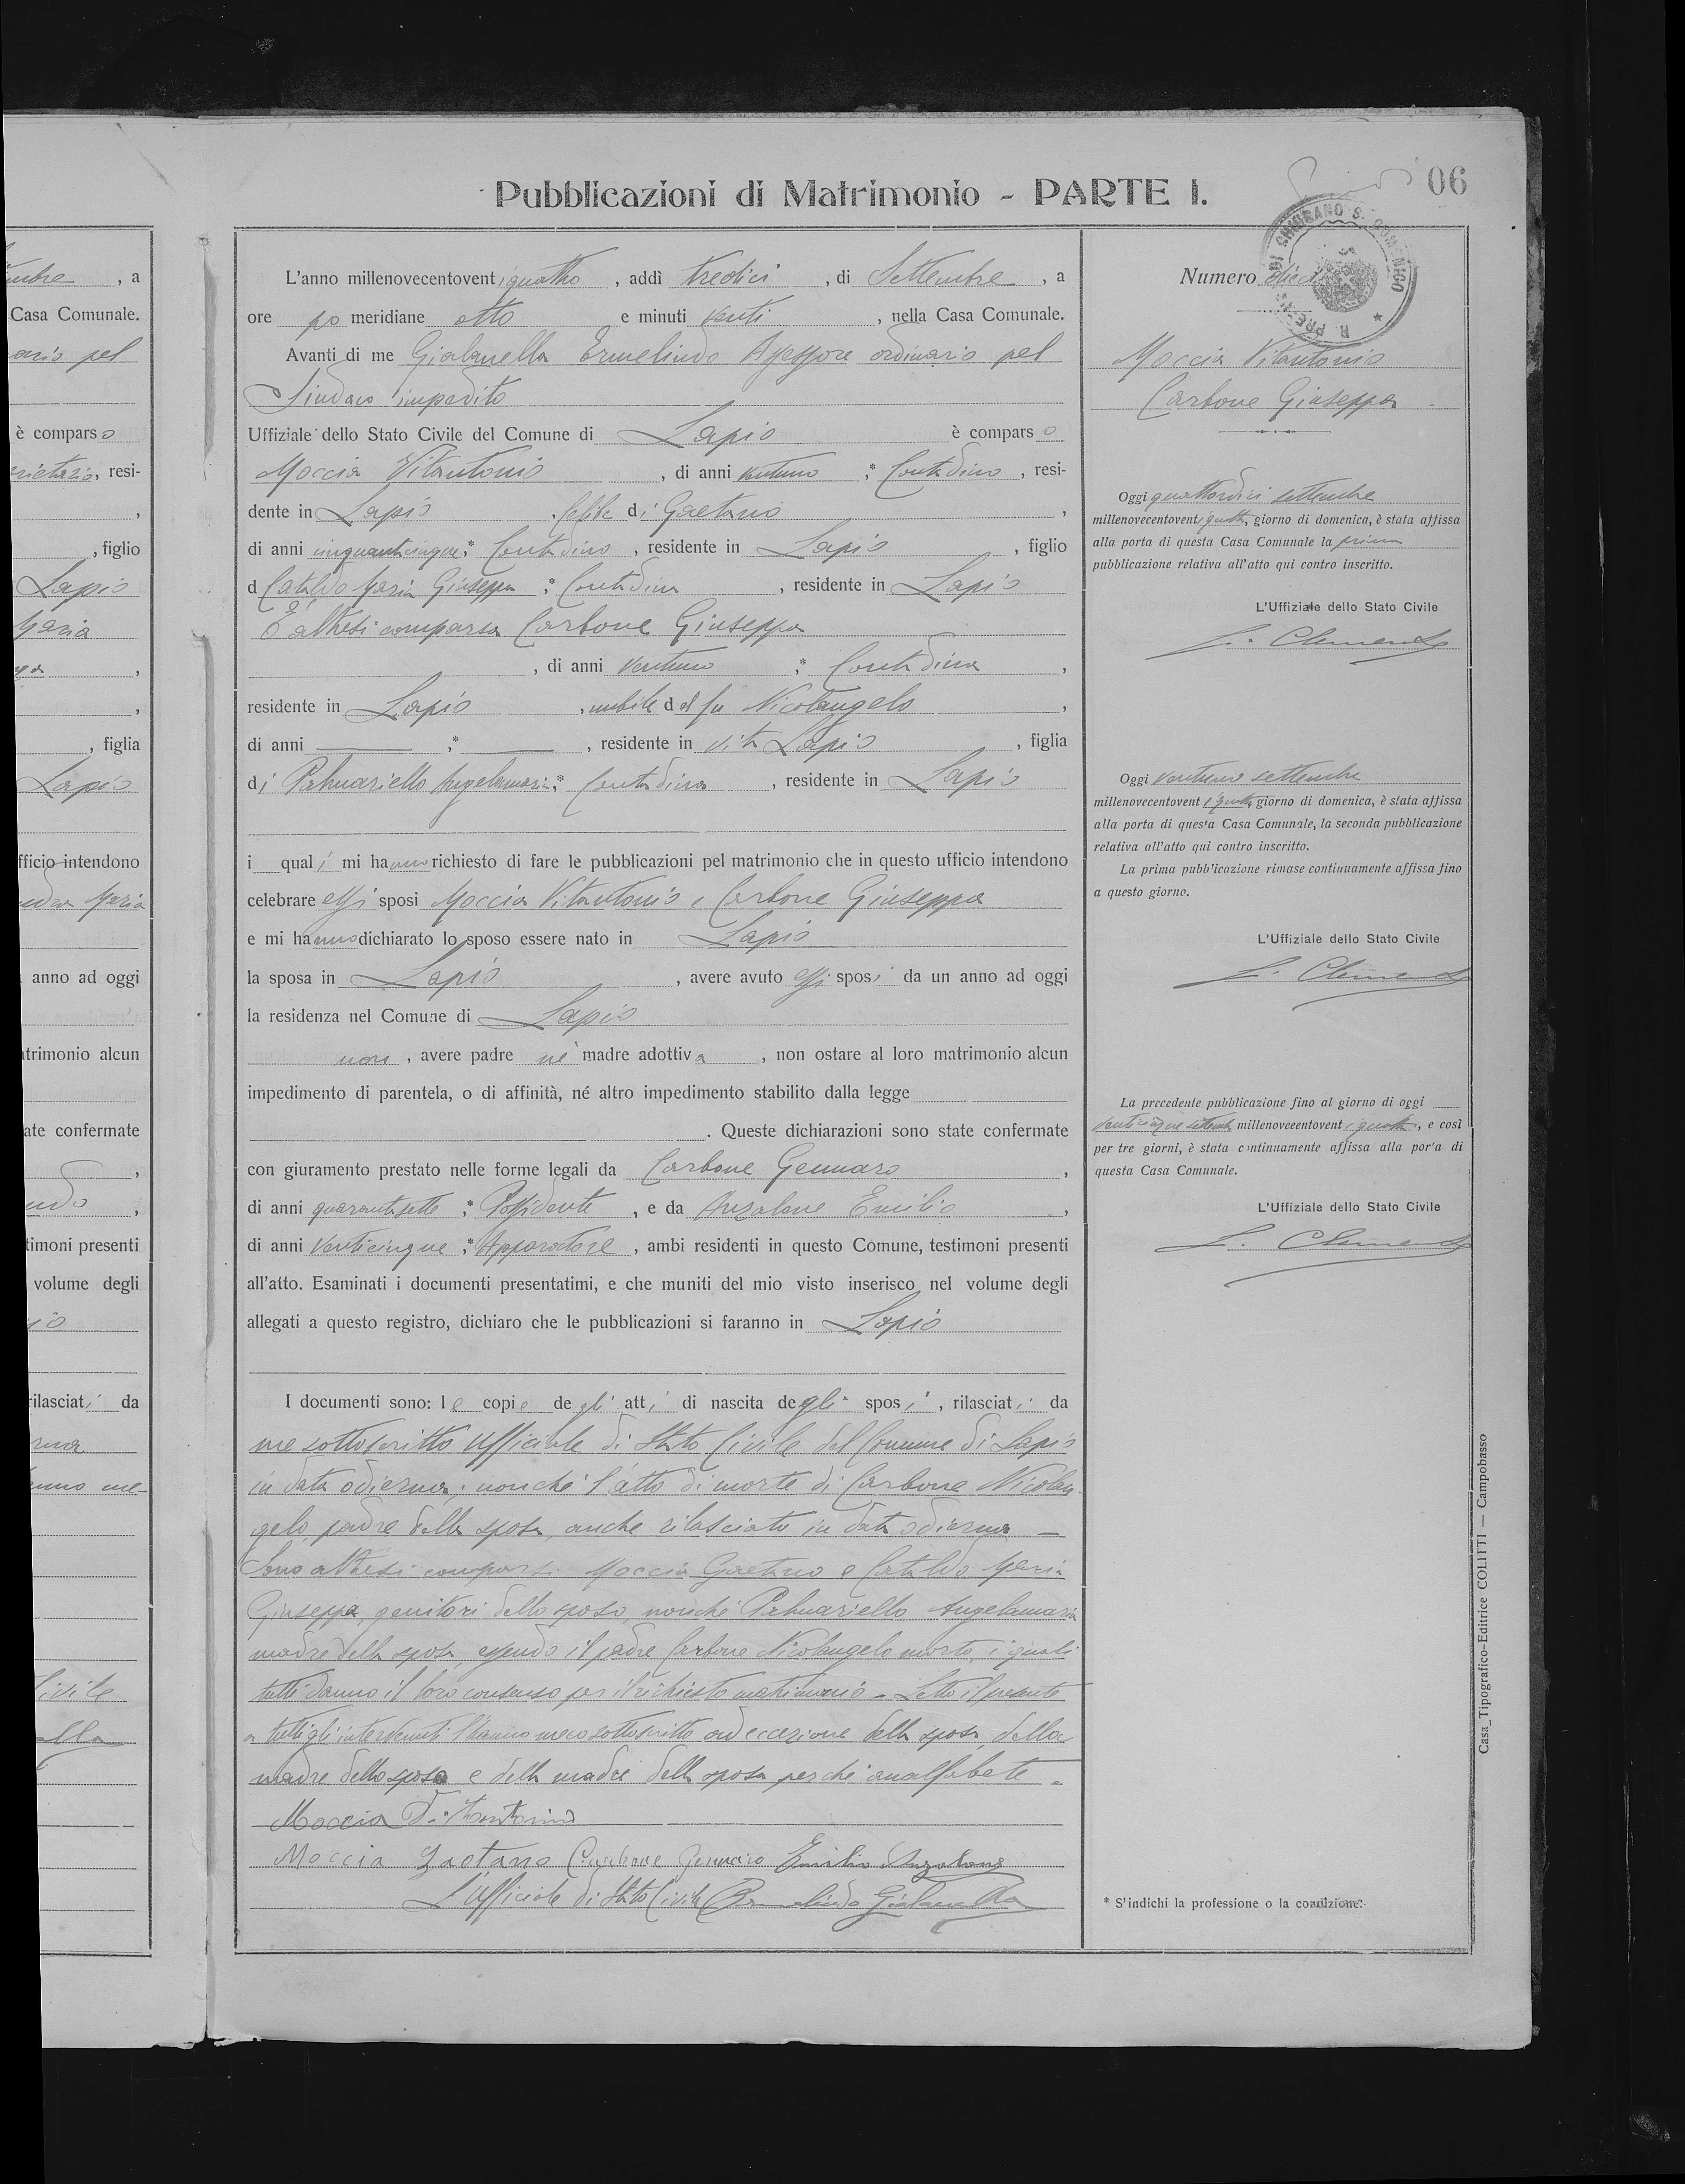 Pubblicazioni di Matrimonio - PARTE I.
06
L'anno millenovecentoventiquattro, addì tredici, di Settembre, a
ore po meridiane otto e minuti venti, nella Casa Comunale.
Avanti di me Gialanella Ermelindo Assessore ordinario pel
Sindaco impedito
Uffiziale dello Stato Civile del Comune di Lapio è comparso
Moccia Vitantonio, di anni ventuno ;* Contadino, resi-
dente in Lapio, celibe di Gaetano,
di anni cinquantacinque ;* Contadino, residente in Lapio, figlio
d Cataldo Maria Giuseppa ; Contadina, residente in Lapio
È altresì comparsa Carbone Giuseppa
, di anni ventuno ;* Contadina,
residente in Lapio, nubile del fu Nicolangelo,
di anni — ;* —, residente in vita Lapio, figlia
di Palmariello Angelamaria ;* Contadina, residente in Lapio
i quali mi hanno richiesto di fare le pubblicazioni pel matrimonio che in questo ufficio intendono
celebrare essi sposi Moccia Vitantonio e Carbone Giuseppa
e mi hanno dichiarato lo sposo essere nato in Lapio
la sposa in Lapio, avere avuto essi sposi da un anno ad oggi
la residenza nel Comune di Lapio
non, avere padre nè madre adottiva, non ostare al loro matrimonio alcun
impedimento di parentela, o di affinità, né altro impedimento stabilito dalla legge
. Queste dichiarazioni sono state confermate
con giuramento prestato nelle forme legali da Carbone Gennaro,
di anni quarantasette ;* Possidente, e da Anzalone Emilio,
di anni venticinque ;* Apparatore, ambi residenti in questo Comune, testimoni presenti
all'atto. Esaminati i documenti presentatimi, e che muniti del mio visto inserisco nel volume degli
allegati a questo registro, dichiaro che le pubblicazioni si faranno in Lapio
I documenti sono: le copie degli atti di nascita degli sposi, rilasciati da
me sottoscritto Ufficiale di Stato Civile del Comune di Lapio
in data odierna; nonché l'atto di morte di Carbone Nicolan-
gelo, padre della sposa, anche rilasciato in data odierna —
Sono altresì comparsi Moccia Gaetano e Cataldo Maria
Giuseppa, genitori dello sposo, nonché Palmariello Angelamaria
madre della sposa, essendo il padre Carbone Nicolangelo morto, i quali
tutti danno il loro consenso per il richiesto matrimonio - Letto il presente
a tutti gli intervenuti l'hanno meco sottoscritto ad eccezione della sposa, della
madre dello sposo e della madre della sposa perché analfabete -
Moccia Vitantonio
Moccia Gaetano Carbone Gennaro Emilio Anzalone
L'Ufficiale di Stato Civile Ermelindo Gialanella
Numero
R. PRE DI CHIUSANO S. DOMENICO
Moccia Vitantonio
Carbone Giuseppa
Oggi quattordici settembre
millenovecentoventiquattro, giorno di domenica, è stata affissa
alla porta di questa Casa Comunale la prima
pubblicazione relativa all'atto qui contro inscritto.
L'Uffiziale dello Stato Civile
Oggi ventuno settembre
millenovecentoventiquattro, giorno di domenica, è stata affissa
alla porta di questa Casa Comunale, la seconda pubblicazione
relativa all'atto qui contro inscritto.
La prima pubblicazione rimase continuamente affissa fino
a questo giorno.
L'Uffiziale dello Stato Civile
La precedente pubblicazione fino al giorno di oggi
venticinque settembre millenoveeentoventiquattro, e così
per tre giorni, è stata continuamente affissa alla porta di
questa Casa Comunale.
L'Uffiziale dello Stato Civile
* S'indichi la professione o la condizione.
Casa Tipografico-Editrice COLITTI — Campobasso
, a
Casa Comunale.
pel
è comparso
, resi-
,
, figlio
Lapio
Maria
,
,
, figlia
Lapio
fficio intendono
Maria
anno ad oggi
trimonio alcun
ate confermate
,
,
timoni presenti
volume degli
rilasciati da